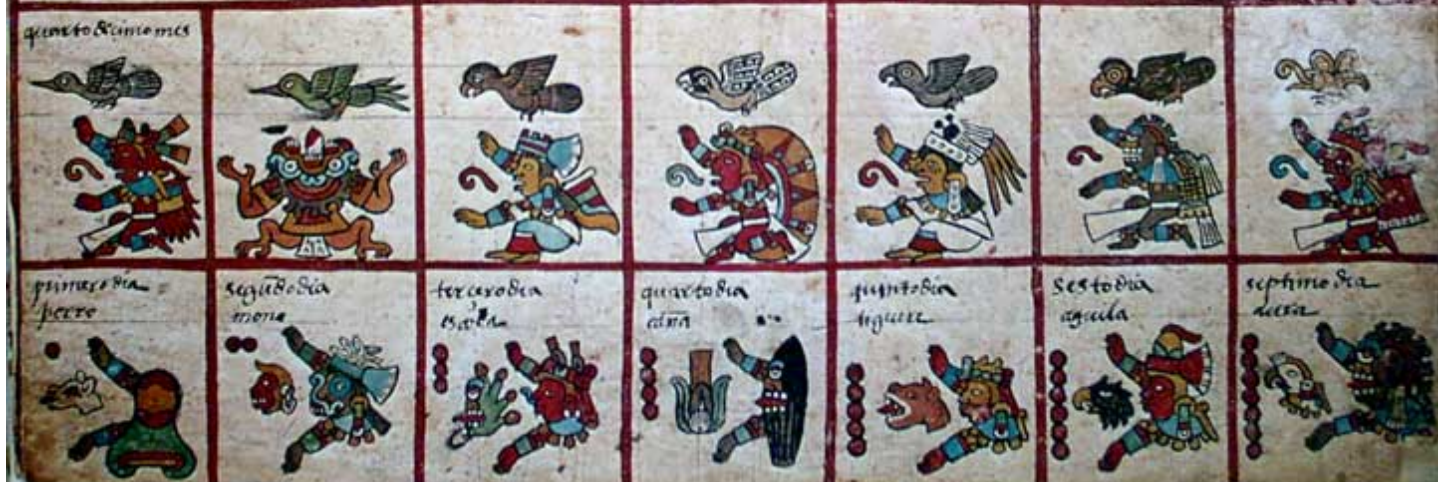 quartodecimo mes
primero dia
perro
segũdo dia
mona
tercero dia
quarto dia
caña
quinto dia
tiguere
sesto dia
aguila
septimo dia